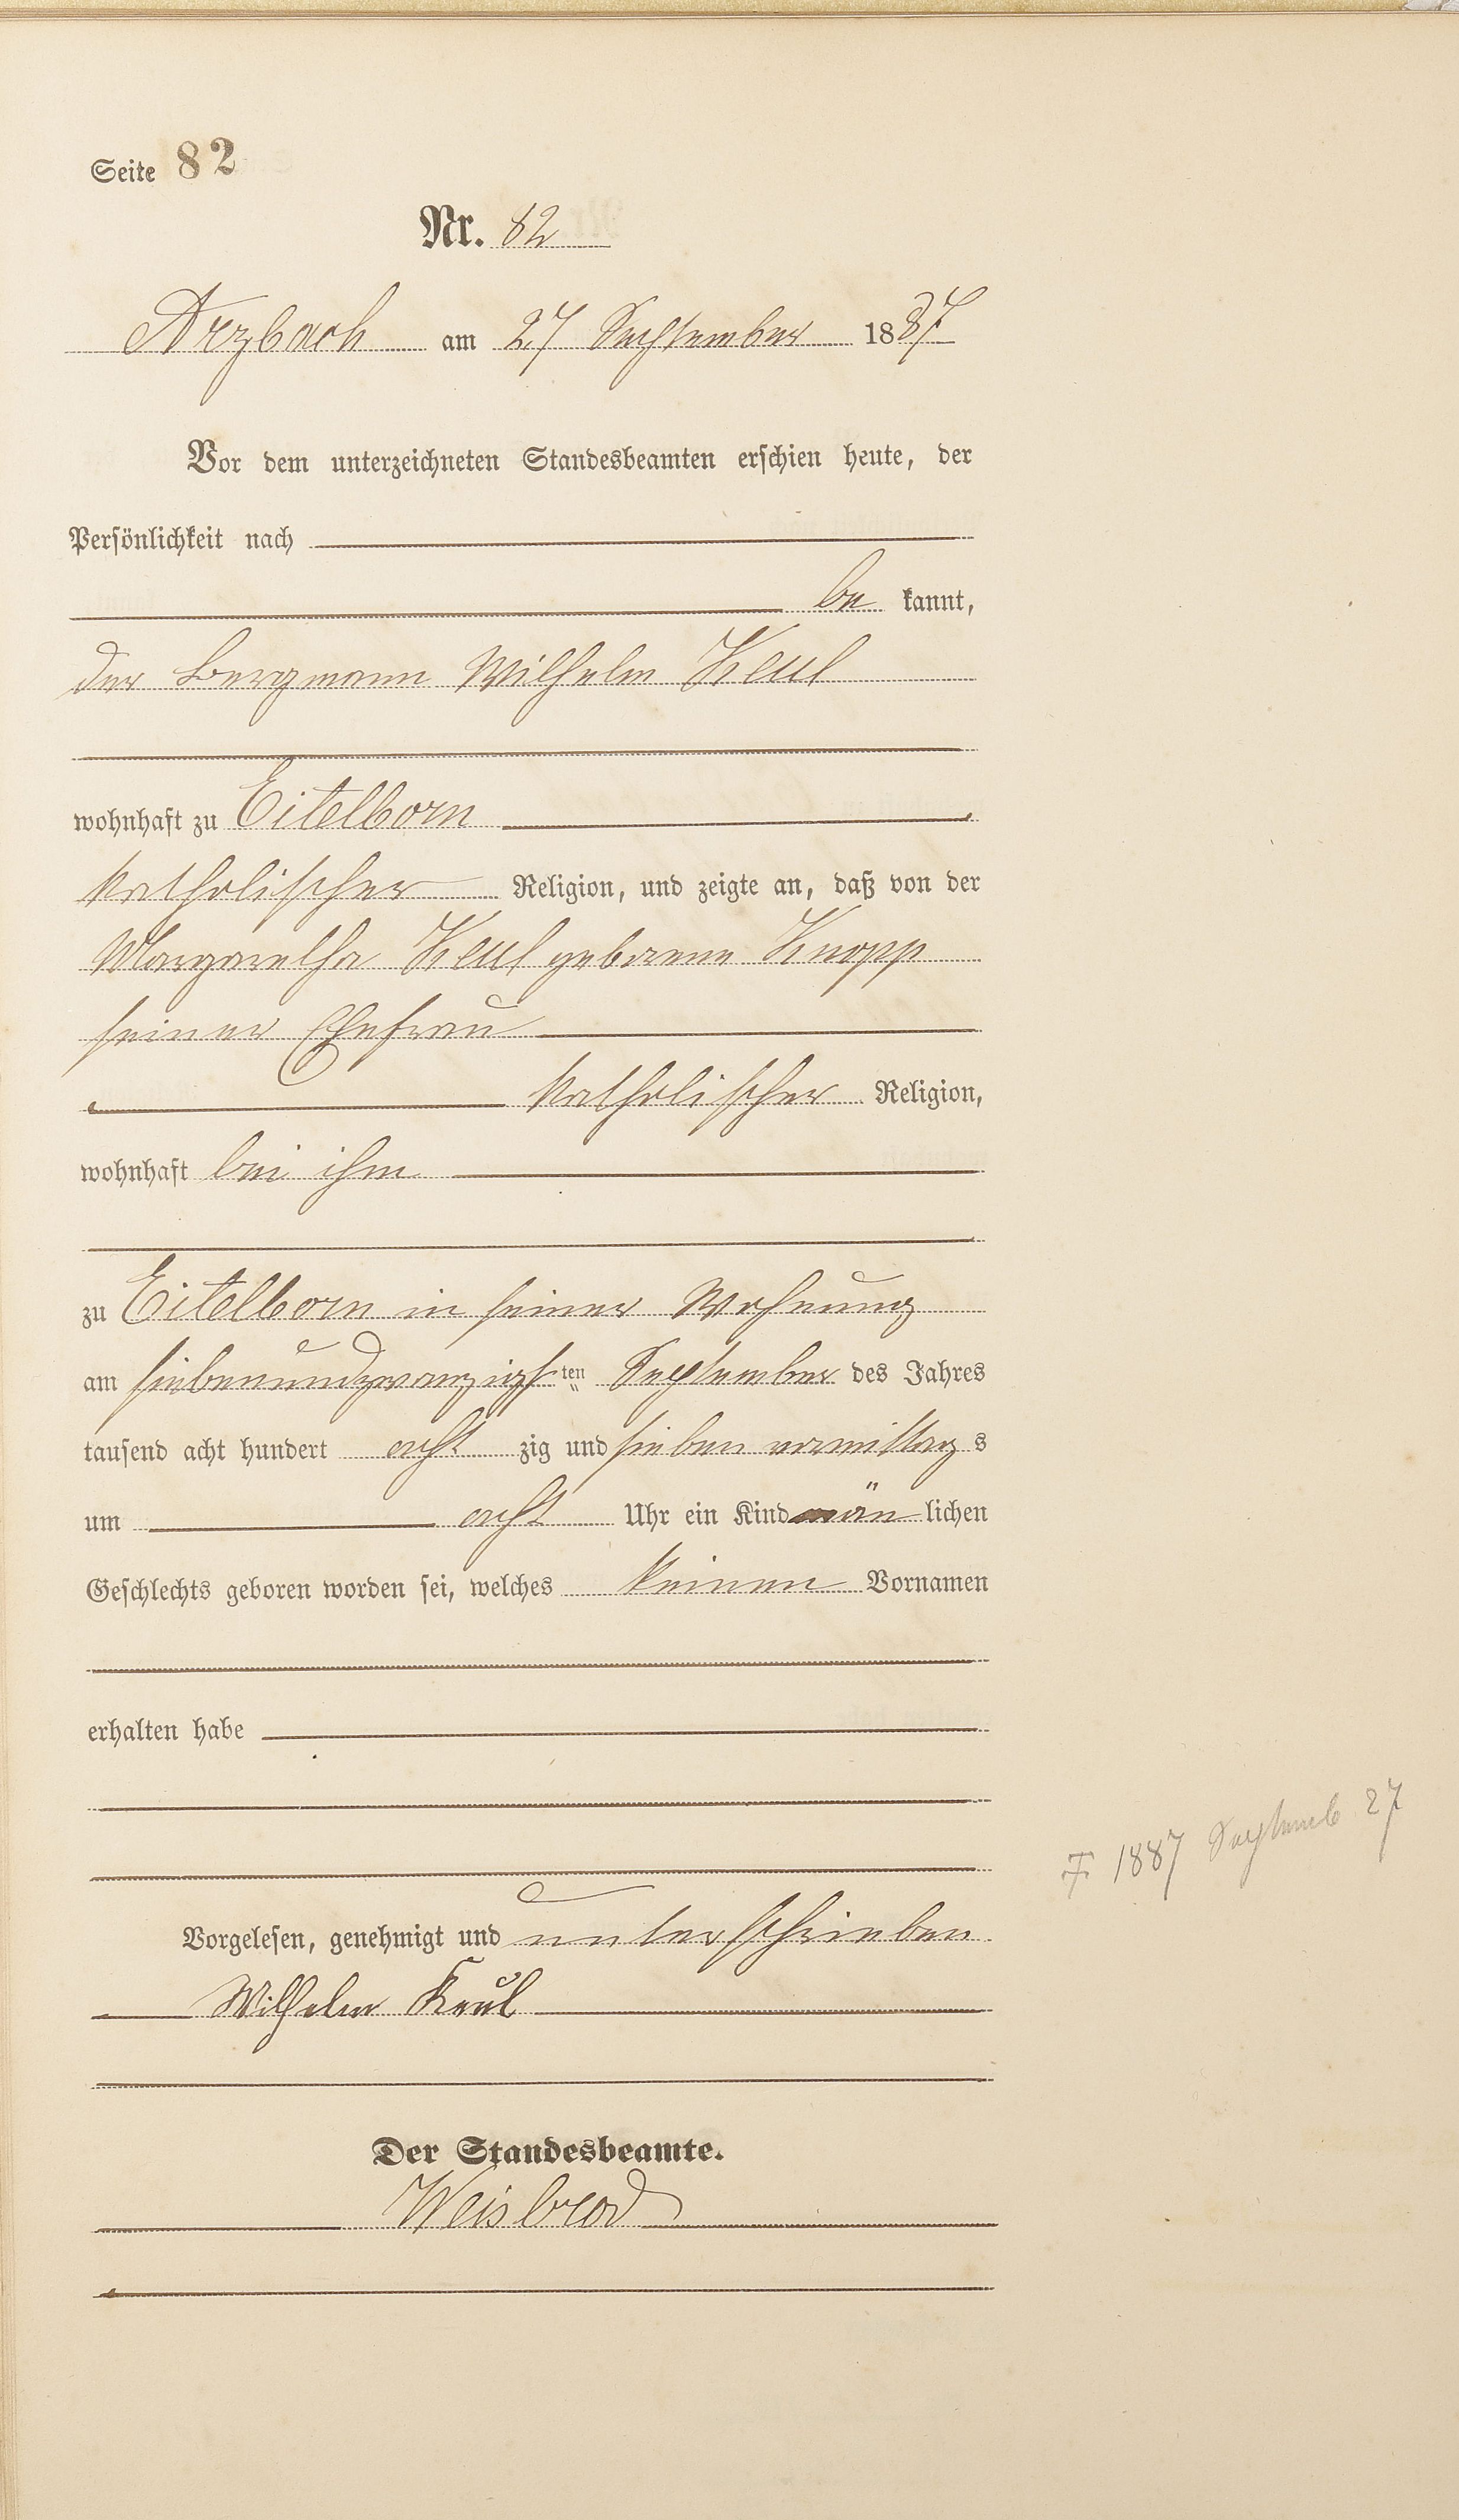 Seite 82
Nr. 82
Arzbach am 27 September 1887
Vor dem unterzeichneten Standesbeamten erschien heute, der
Persönlichkeit nach
be kannt,
der Bergmann Wilhelm Keul
wohnhaft zu Eitelborn
katholischer Religion, und zeigte an, daß von der
Margaretha Keul geborene Knopp
seiner Ehefrau
katholischer Religion,
wohnhaft bei ihm
zu Eitelborn in seiner Wohnung
am siebenundzwanzigsten September des Jahres
tausend acht hundert acht zig und sieben vormittag s
um acht Uhr ein Kind män lichen
Geschlechts geboren worden sei, welches keinen Vornamen
erhalten habe
† 1887 Septemb 27
Vorgelesen, genehmigt und unterschrieben
Wilhelm Keul
Der Standesbeamte.
Weisbrod